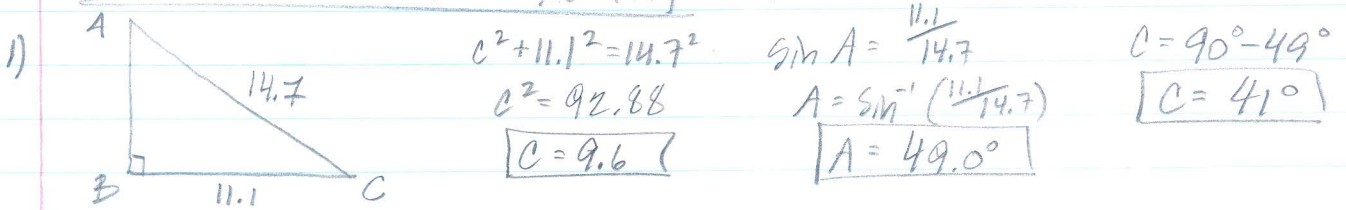 1)
A
14.7
B
11.1
C
c²+11.1²=14.7²
c²=92.88
C=9.6
Sin A = 11.1/14.7
A = Sin⁻¹ (11.1/14.7)
A = 49.0°
C=90°-49°
C= 41°